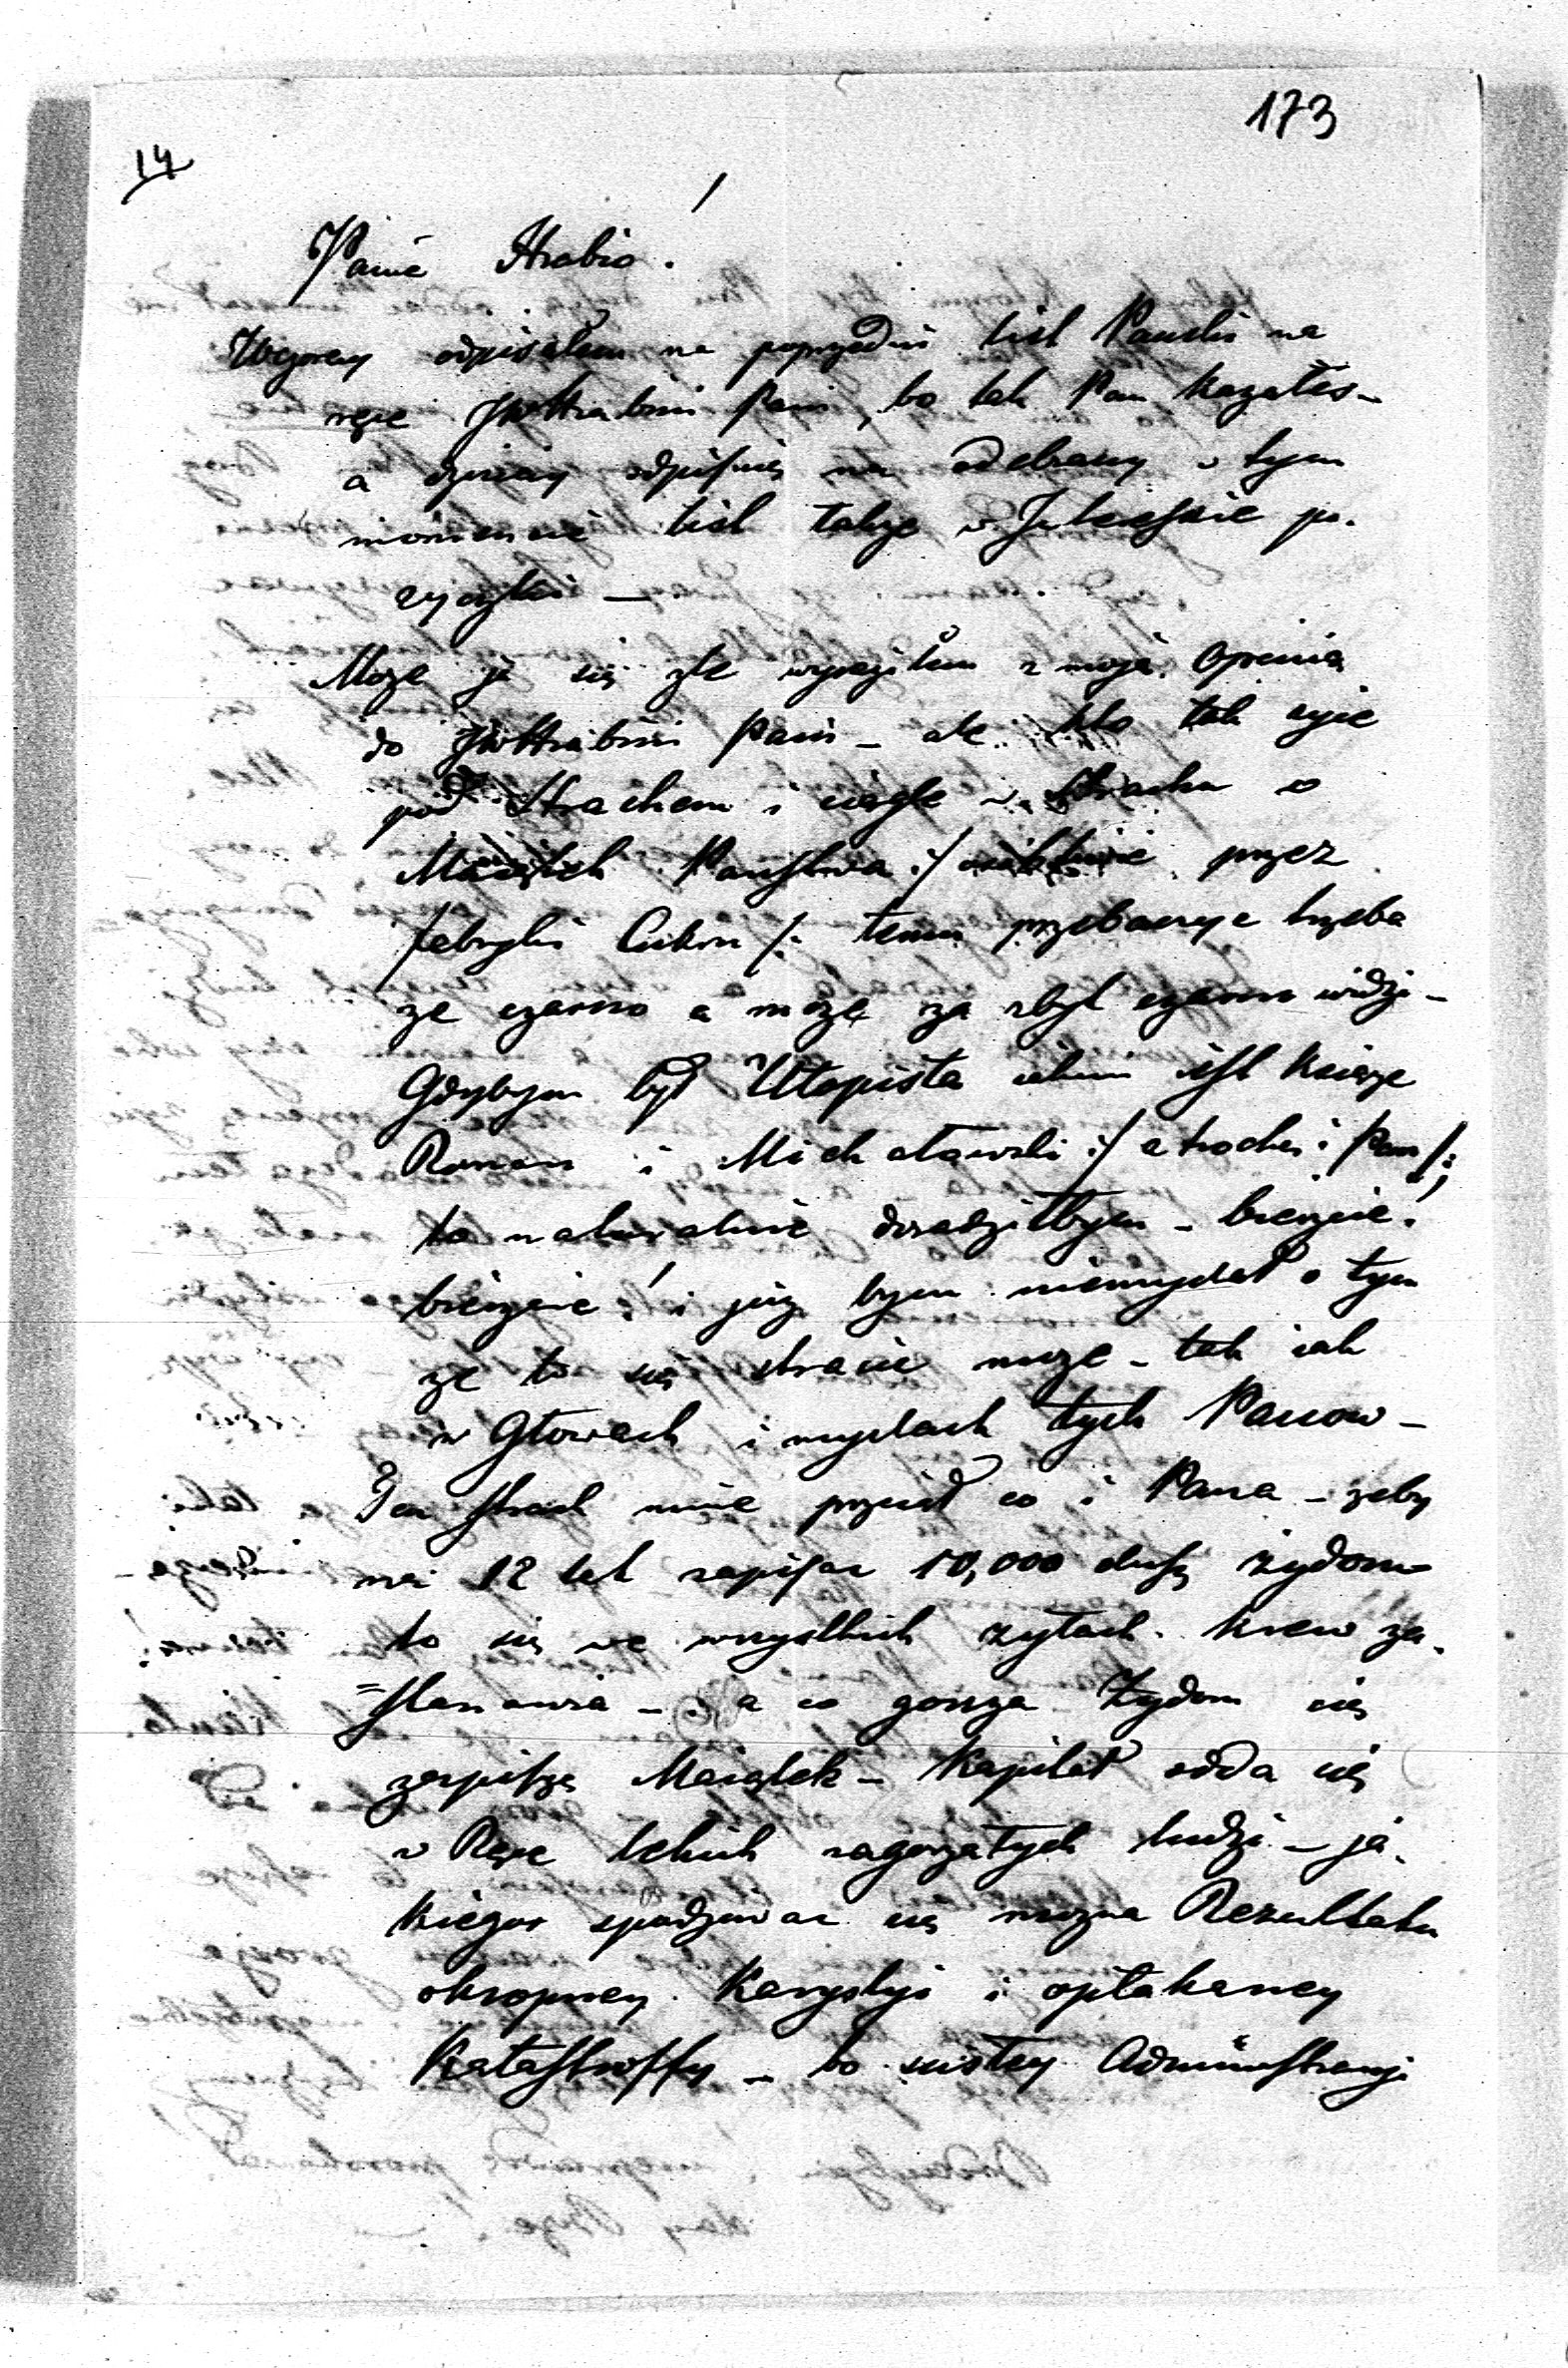 173
14
Panie Hrabio!
Wczoray odpisałem na poprzedni list Pański na
ręce JWHrabini Pani, bo tak Pan kazałeś –
a dzisiay odpisuię na odebrany w tym
momencie list także w Interessie po-
zyczki —
Moze ja się zle wyraziłem z moją Opinią
do JWHrabini Pani – ale kto tak zyie
pod Strachem i ciągle w Strachu o
Maiątek Państwa :/ przez
fabryki Cukru /: temu przebaczyc trzeba
ze czarno a może za zbyt czarno widzi –
Gdybym był Utopista iakim iest Xiąże
Roman i Michałowski :/ a trochę i Pan /:,
to naturalnie doradziłbym – bierzcie!
bierzcie! i już bym niemyslał o tym
ze to się stracić moze – tak iak
w Głowach i myslach tych Panow –
Ten strach mnie przeiął co i Pana – zeby
na 12 lat zapisac 10,000 duszę żydom
to się we wszystkich zyłach krew za-
=stanawia – a co gorsza Zydom się
zapisze Maiątek – Kapitał odda się
w Ręce takich zagorzałych ludzi – ja-
kiegoz spodziewac się mozna Rezultatu
okropney i opłakaney
Katastroffy – bo scisłey Administracyi